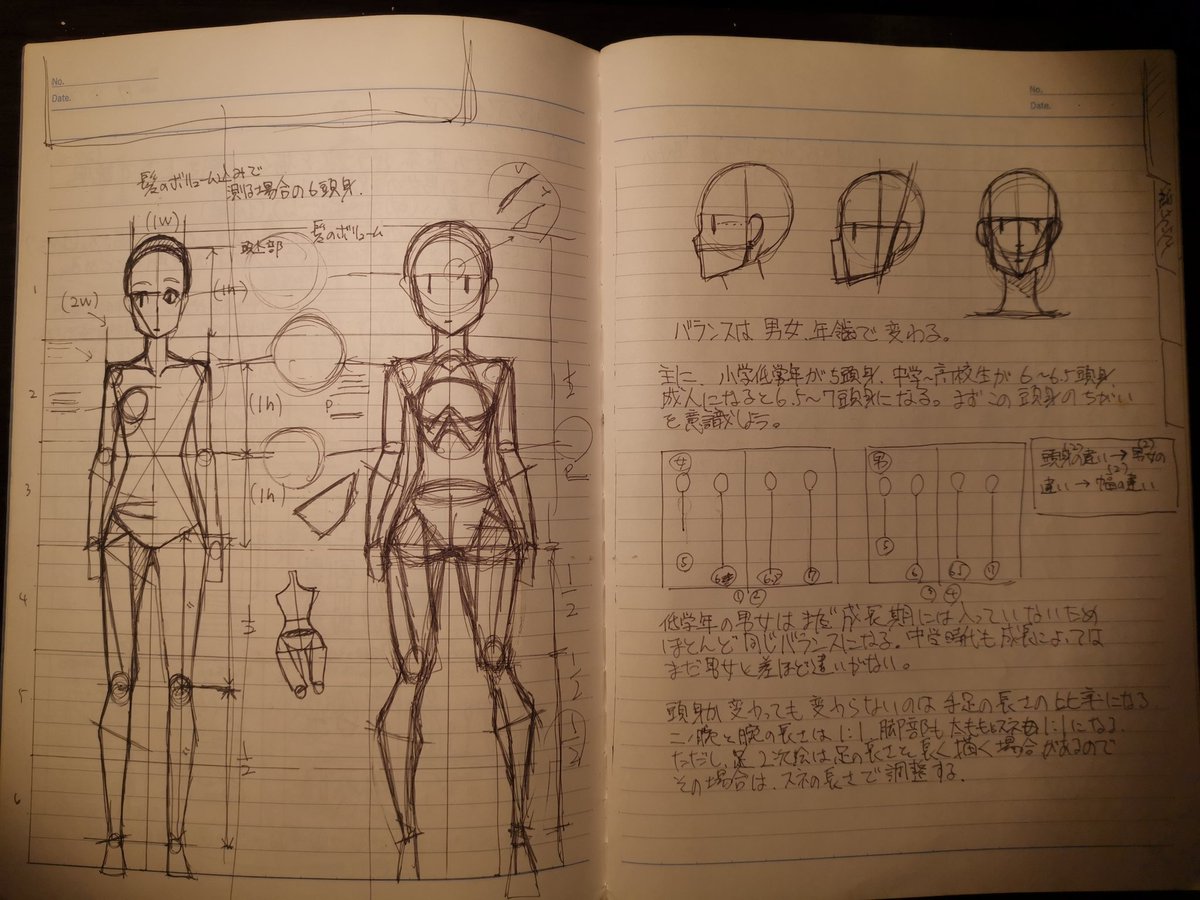 No.
Date.
髪のボリューム込みで
測る場合の6頭身.
(1w)
頭上部
髪のボリューム
(2w)
(1h)
(1h)
(1h)
1
2
3
4
5
6
1/2
1/2
1/2
1/2
No.
Date.
バランスは男女、年齢で変わる。
主に、小学低学年が5頭身、中学~高校生が6~6.5頭身
成人になると6.5~7頭身になる。まずこの頭身のちがい
を意識しよう。
女
男
5
6
6.5
7
5
6
6.5
7
① ②
③ ④
頭身の違い→男女の
違い→幅の違い
低学年の男女はまだ成長期には入っていないため
ほとんど同じバランスになる。中学時代も成長によっては
まだ男女と差ほど違いがない。
頭身が変わっても変わらないのは手足の長さの比率になる
二ノ腕と腕の長さは1:1、脚部も太ももとスネも1:1になる.
ただし、足2次絵は足の長さを長く描く場合があるので
その場合は、スネの長さで調整する.